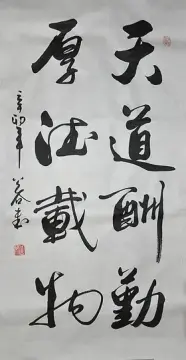 天道酬勤
厚德載物
辛卯年